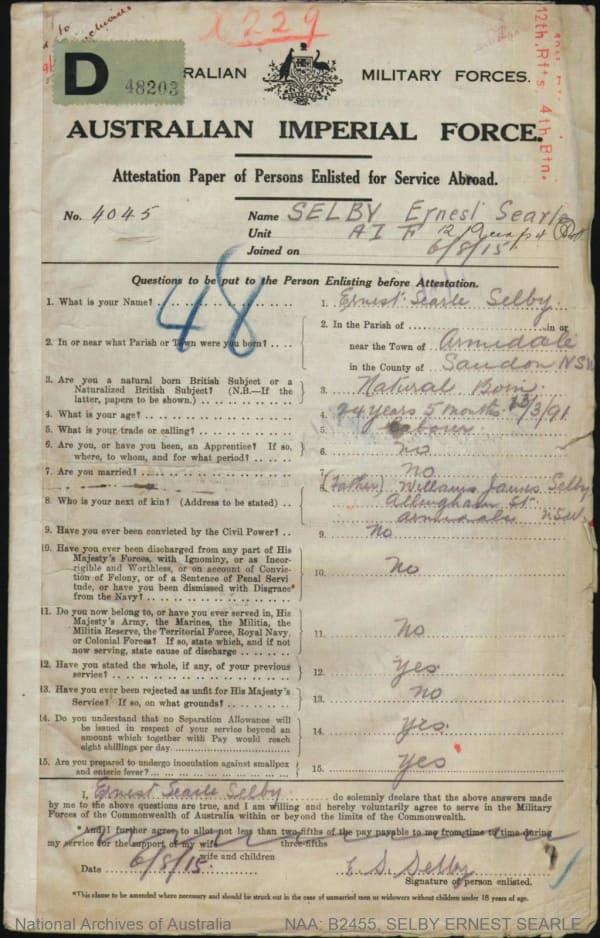 X229
D
48203
RALIAN MILITARY FORCES.
12th. Rfts. 4th. Btn.
AUSTRALIAN IMPERIAL FORCE.
Attestation Paper of Persons Enlisted for Service Abroad.
No. 4045
Name SELBY Ernest Searle
Unit AIF 12
Joined on 6/8/15
48
Questions to be put to the Person Enlisting before Attestation.
1. What is your Name? 1. Ernest Searle Selby
2. In or near what Parish or Town were you born? 2. In the Parish of in or
near the Town of Armidale
in the County of Sandon NSW
3. Are you a natural born British Subject or a
Naturalized British Subject? (N.B.—If the
latter, papers to be shown.) 3. Natural Born
4. What is your age? 4. 24 years 5 months /3/91
5. What is your trade or calling? 5. Laborer
6. Are you, or have you been, an Apprentice? If so,
where, to whom, and for what period? 6. No
7. Are you married? 7. No
8. Who is your next of kin? (Address to be stated) 8. (Father) William James Selby
Allingham St.
Armidale NSW
9. Have you ever been convicted by the Civil Power? 9. No
10. Have you ever been discharged from any part of His
Majesty's Forces, with Ignominy, or as Incor-
rigible and Worthless, or on account of Convic-
tion of Felony, or of a Sentence of Penal Servi
tude, or have you been dismissed with Disgrace
from the Navy? 10. No
11. Do you now belong to, or have you ever served in, His
Majesty's Army, the Marines, the Militia, the
Militia Reserve, the Territorial Force, Royal Navy,
or Colonial Forces? If so, state which, and if not
now serving, state cause of discharge 11. No
12. Have you stated the whole, if any, of your previous
service? 12. Yes
13. Have you ever been rejected as unfit for His Majesty's
Service? If so, on what grounds? 13. No
14. Do you understand that no Separation Allowance will
be issued in respect of your service beyond an
amount which together with Pay would reach
eight shillings per day. 14. Yes
15. Are you prepared to undergo inoculation against smallpox
and enteric fever? 15. Yes
I, Ernest Searle Selby do solemnly declare that the above answers made
by me to the above questions are true, and I am willing and hereby voluntarily agree to serve in the Military
Forces of the Commonwealth of Australia within or beyond the limits of the Commonwealth.
*And I further agree to allot not less than two-fifths of the pay payable to me from time to time during
my service for the support of my wife three-fifths
wife and children
Date 6/8/15 E. S. Selby
Signature of person enlisted.
*This clause to be amended where necessary and should be struck out in the case of unmarried men or widowers without children under 18 years of age.
National Archives of Australia NAA: B2455, SELBY ERNEST SEARLE